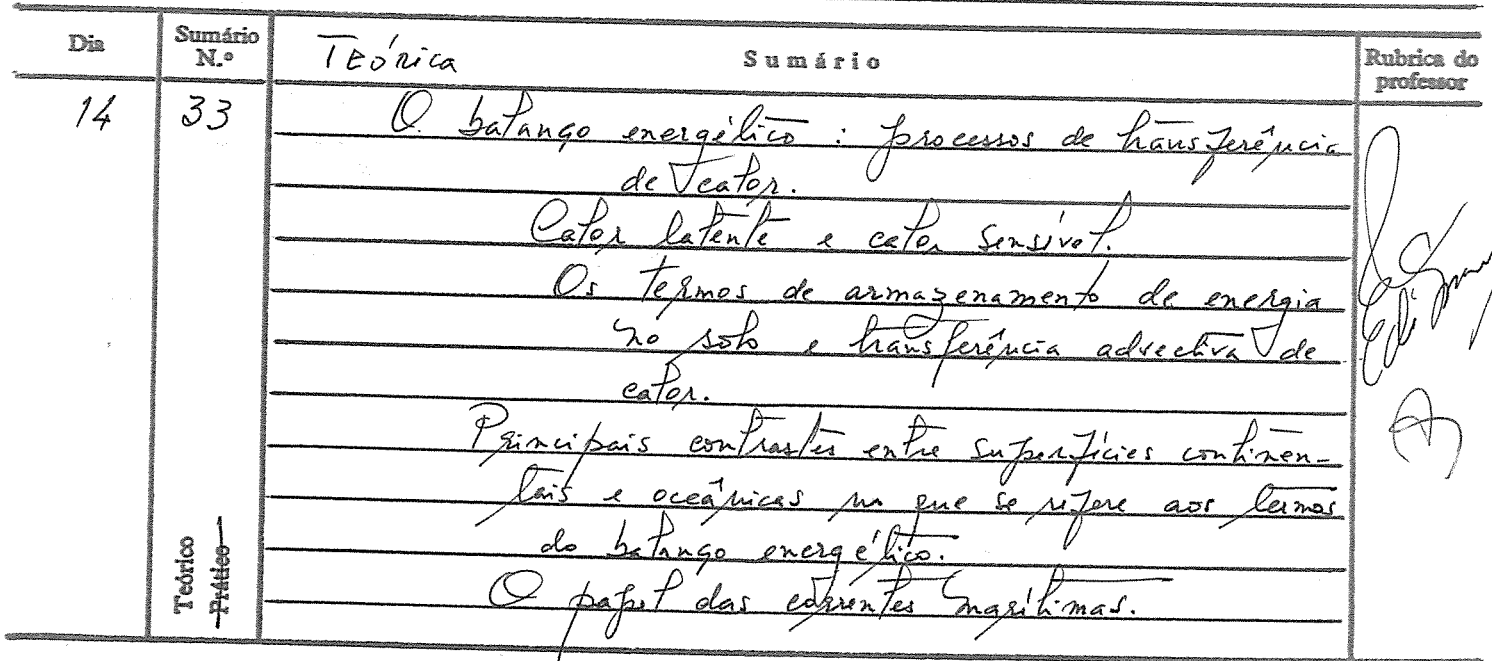 Dia
Sumário N.º
TEÓRICA
Sumário
Rubrica do professor
14
33
O balanço energético : processos de transferência
de calor.
Calor latente e calor sensível.
Os termos de armazenamento de energia
no solo e transferência advectiva de
calor.
Principais contrastes entre superfícies continen-
tais e oceânicas no que se refere aos termos
do balanço energético.
O papel das correntes marítimas.
Teórico
Prático